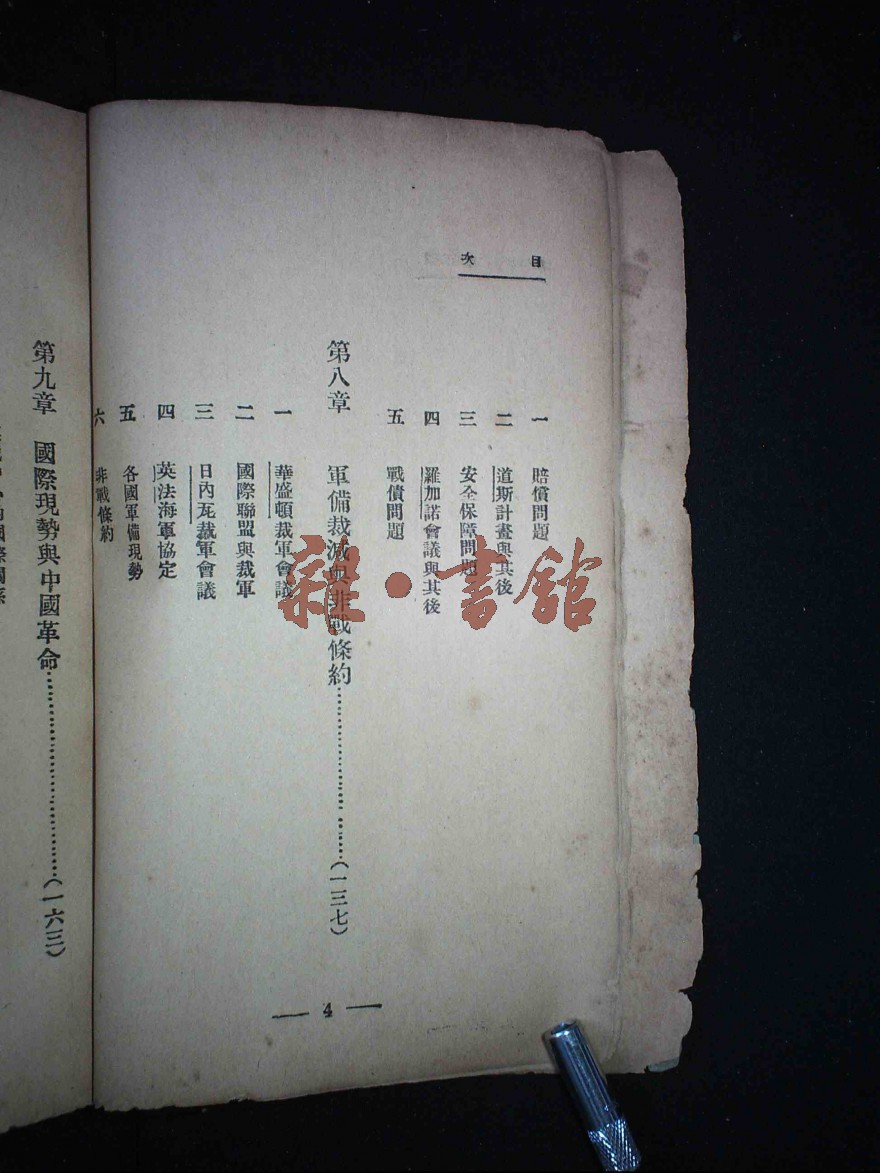 目次
一 賠償問題
二 道斯計畫與其後
三 安全保障問題
四 羅加諾會議與其後
五 戰債問題
第八章 軍備裁減與非戰條約……(一三七)
一 華盛頓裁軍會議
二 國際聯盟與裁軍
三 日內瓦裁軍會議
四 英法海軍協定
五 各國軍備現勢
六 非戰條約
— 4 —
第九章 國際現勢與中國革命……(一六三)
的國際關係
雜·書館